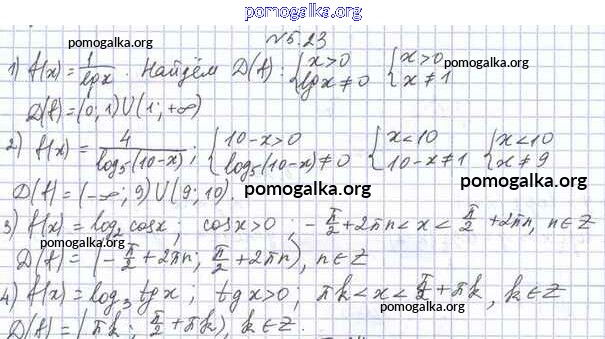 pomogalka.org
№5.23
pomogalka.org
pomogalka.org
1) f(x) = 1/lg x . Найдём D(f): { x > 0 lg x ≠ 0 { x > 0 x ≠ 1
D(f) = (0; 1) ∪ (1; +∞)
pomogalka.org
2) f(x) = 4/log₅(10-x) ; { 10-x > 0 log₅(10-x) ≠ 0 { x < 10 10-x ≠ 1 { x < 10 x ≠ 9
D(f) = (-∞; 9) ∪ (9; 10).
pomogalka.org
pomogalka.org
3) f(x) = log₂ cos x ; cos x > 0 ; -π/2 + 2πn < x < π/2 + 2πn, n ∈ Z
pomogalka.org
D(f) = (-π/2 + 2πn; π/2 + 2πn), n ∈ Z
pomogalka.org
4) f(x) = log₃ tg x ; tg x > 0 ; πk < x < π/2 + πk, k ∈ Z
pomogalka.org
D(f) = (πk ; π/2 + πk), k ∈ Z.
pomogalka.org